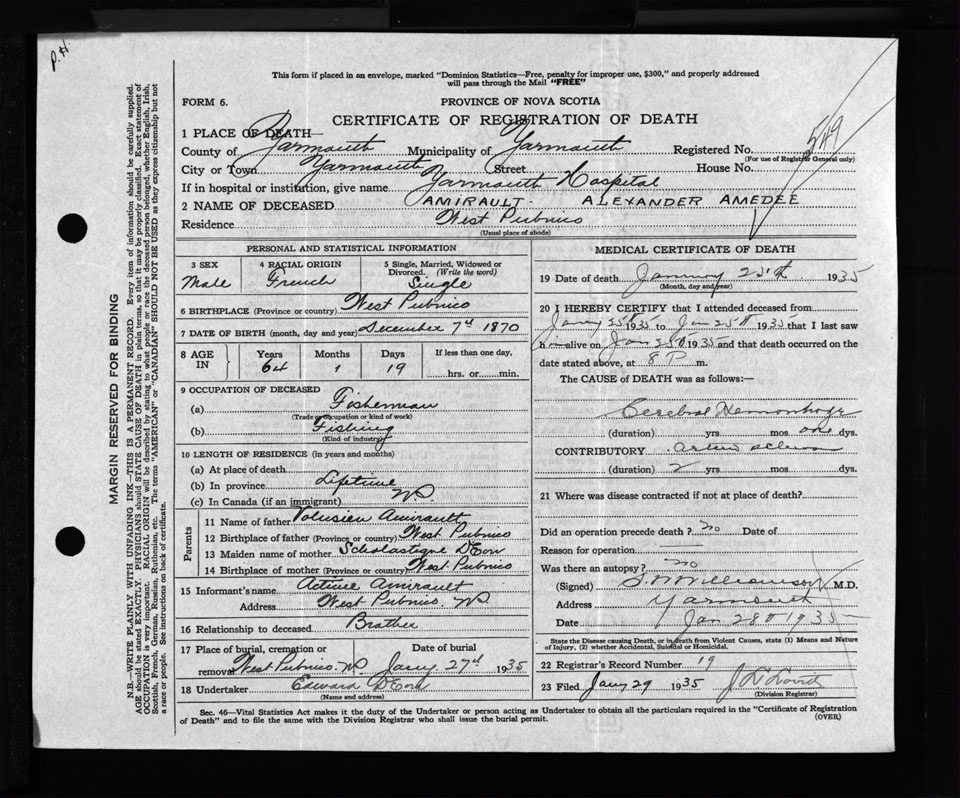 P. H.
This form if placed in an envelope, marked "Dominion Statistics—Free, penalty for improper use, $300," and properly addressed
will pass through the Mail "FREE"
FORM 6.
PROVINCE OF NOVA SCOTIA
CERTIFICATE OF REGISTRATION OF DEATH
549
1 PLACE OF DEATH—
County of Yarmouth Municipality of Yarmouth Registered No.
(For use of Registrar General only)
City or Town Yarmouth Street House No.
If in hospital or institution, give name Yarmouth Hospital
2 NAME OF DECEASED AMIRAULT - ALEXANDER AMEDEE
Residence West Pubnico
(Usual place of abode)
PERSONAL AND STATISTICAL INFORMATION
3 SEX 4 RACIAL ORIGIN 5 Single, Married, Widowed or
Divorced. (Write the word)
Male French Single
6 BIRTHPLACE (Province or country) West Pubnico
7 DATE OF BIRTH (month, day and year) December 7th 1870
8 AGE IN Years Months Days If less than one day,
64 1 19 hrs. or min.
9 OCCUPATION OF DECEASED
(a) Fisherman
(Trade occupation or kind of work)
(b) Fishing
(Kind of industry)
10 LENGTH OF RESIDENCE (in years and months)
(a) At place of death
(b) In province Lifetime
(c) In Canada (if an immigrant) NS
Parents
11 Name of father Volusien Amirault
12 Birthplace of father (Province or country) West Pubnico
13 Maiden name of mother Scholastique D'Eon
14 Birthplace of mother (Province or country) West Pubnico
15 Informant's name Amirault
Address West Pubnico. NS
16 Relationship to deceased Brother
17 Place of burial, cremation or Date of burial
removal West Pubnico. NS Jany. 27th 1935
18 Undertaker Edward D'Eon
(Name and address)
MEDICAL CERTIFICATE OF DEATH
19 Date of death January 25th 1935
(Month, day and year)
20 I HEREBY CERTIFY that I attended deceased from
Jany 25th 1935 to Jan 25th 1935 that I last saw
him alive on Jan 25th 1935 and that death occurred on the
date stated above, at 8 P m.
The CAUSE of DEATH was as follows:—
Cerebral Hemorrhage
(duration) yrs mos one dys.
CONTRIBUTORY
(duration) 2 yrs mos dys.
21 Where was disease contracted if not at place of death?
Did an operation precede death? no Date of
Reason for operation
Was there an autopsy? no
(Signed) Williamson M.D.
Address Yarmouth
Date Jan 28th 1935
State the Disease causing Death, or in death from Violent Causes, state (1) Means and Nature
of Injury, (2) whether Accidental, Suicidal or Homicidal.
22 Registrar's Record Number 19
23 Filed Jany 29 1935
(Division Registrar)
Sec. 46—Vital Statistics Act makes it the duty of the Undertaker or person acting as Undertaker to obtain all the particulars required in the "Certificate of Registration
of Death" and to file the same with the Division Registrar who shall issue the burial permit.
(OVER)
MARGIN RESERVED FOR BINDING
N.B.—WRITE PLAINLY WITH UNFADING INK—THIS IS A PERMANENT RECORD. Every item of information should be carefully supplied.
AGE should be stated EXACTLY. PHYSICIANS should STATE CAUSE OF DEATH in plain terms, so that it may be properly classified. Exact statement of
OCCUPATION is very important. RACIAL ORIGIN will be described by stating to what people or race the deceased person belonged, whether English, Irish,
Scottish, French, German, Russian, Ruthenian, etc. The terms "AMERICAN" or "CANADIAN" SHOULD NOT BE USED as they express citizenship but not
a race or people. See instructions on back of certificate.